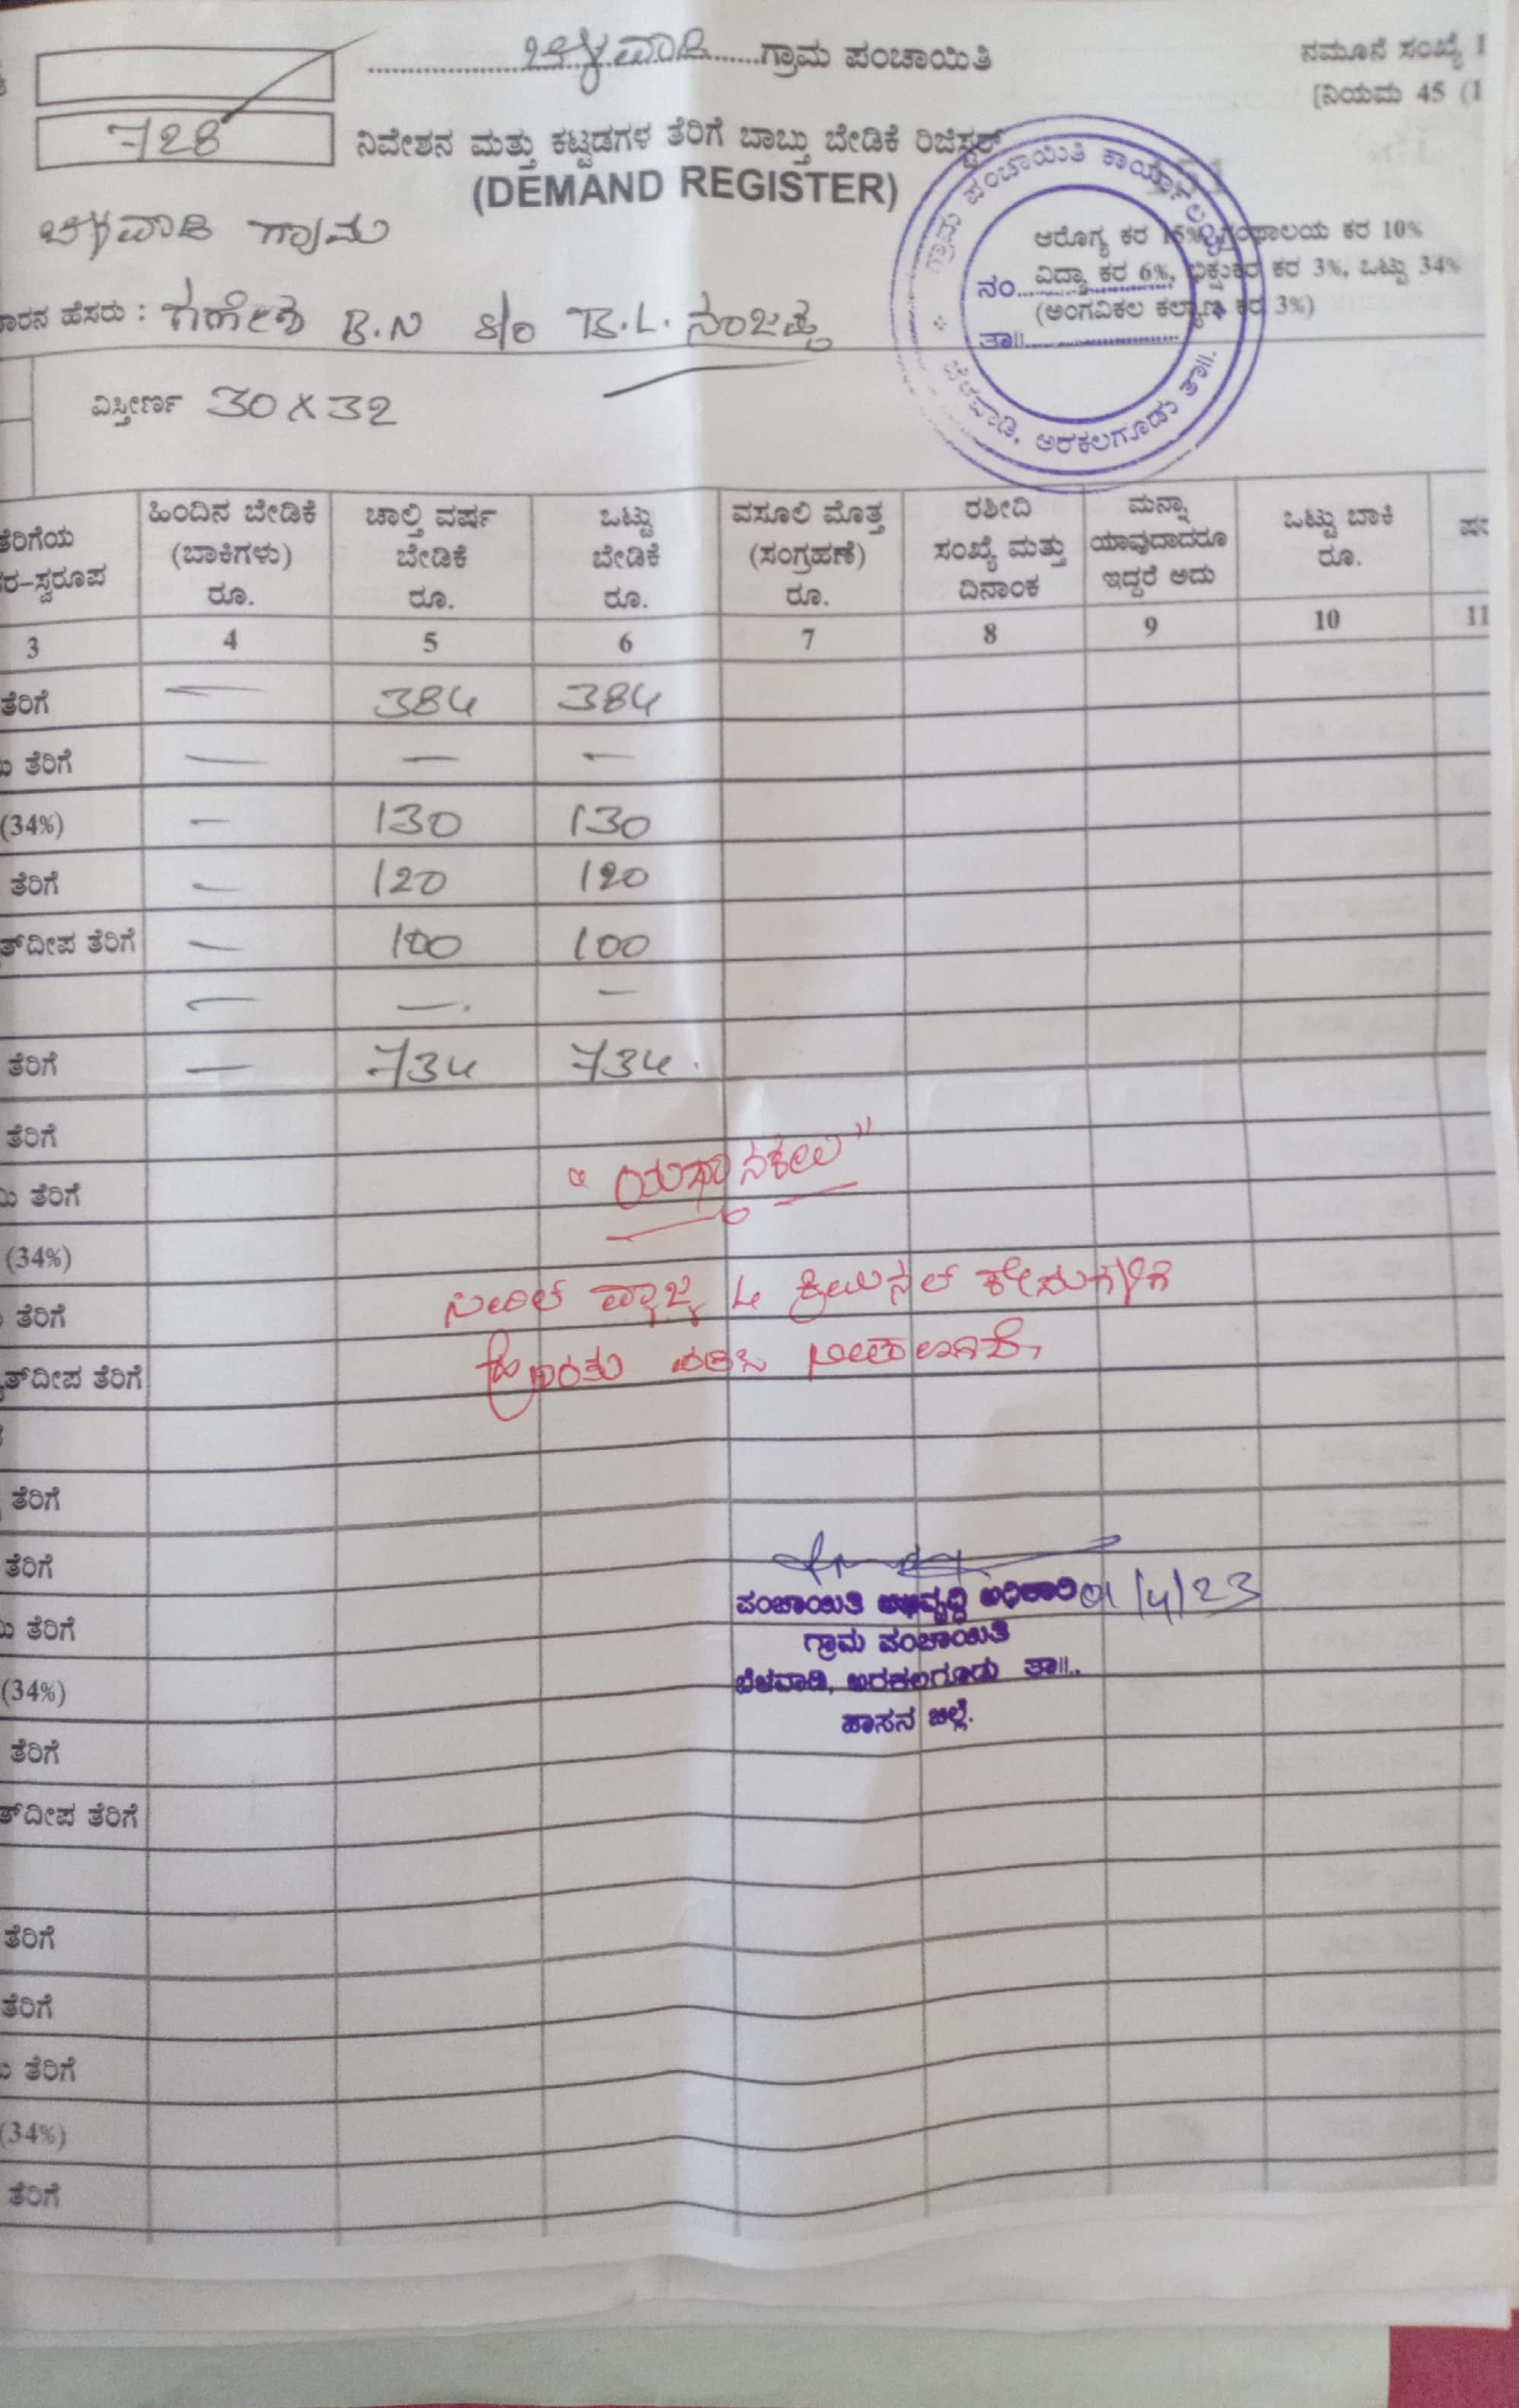 ಬೆಳವಾಡಿ ಗ್ರಾಮ ಪಂಚಾಯಿತಿ
ನಮೂನೆ ಸಂಖ್ಯೆ 1
[ನಿಯಮ 45 (1
728
ನಿವೇಶನ ಮತ್ತು ಕಟ್ಟಡಗಳ ತೆರಿಗೆ ಬಾಬ್ತು ಬೇಡಿಕೆ ರಿಜಿಸ್ಟರ್
(DEMAND REGISTER)
ಬೆಳವಾಡಿ ಗ್ರಾಮ
ಆರೋಗ್ಯ ಕರ 15% ಗ್ರಂಥಾಲಯ ಕರ 10%
ವಿದ್ಯಾ ಕರ 6%, ಭಿಕ್ಷುಕರ ಕರ 3%, ಒಟ್ಟು 34%
(ಅಂಗವಿಕಲ ಕಲ್ಯಾಣ ಕರ 3%)
ಗ್ರಾಮ ಪಂಚಾಯಿತಿ ಕಾರ್ಯಾಲಯ
ನಂ
ತಾ॥
ಬೆಳವಾಡಿ, ಅರಕಲಗೂಡು ತಾ॥.
ಾರನ ಹೆಸರು : ಗಣೇಶ B.N S/o B.L. ನಂಜಪ್ಪ
ವಿಸ್ತೀರ್ಣ 30 X 32
ತೆರಿಗೆಯ ರ-ಸ್ವರೂಪ
ಹಿಂದಿನ ಬೇಡಿಕೆ (ಬಾಕಿಗಳು) ರೂ.
ಚಾಲ್ತಿ ವರ್ಷ ಬೇಡಿಕೆ ರೂ.
ಒಟ್ಟು ಬೇಡಿಕೆ ರೂ.
ವಸೂಲಿ ಮೊತ್ತ (ಸಂಗ್ರಹಣೆ) ರೂ.
ರಶೀದಿ ಸಂಖ್ಯೆ ಮತ್ತು ದಿನಾಂಕ
ಮನ್ನಾ ಯಾವುದಾದರೂ ಇದ್ದರೆ ಅದು
ಒಟ್ಟು ಬಾಕಿ ರೂ.
3 4 5 6 7 8 9 10 11
ತೆರಿಗೆ — 384 384
ತೆರಿಗೆ — — —
(34%) — 130 130
ತೆರಿಗೆ — 120 120
ತ್‌ದೀಪ ತೆರಿಗೆ — 100 100
— — —
ತೆರಿಗೆ — 734 734
ತೆರಿಗೆ
"ಯಥಾ ನಕಲು"
ತೆರಿಗೆ
(34%)
ಸಿವಿಲ್ ವ್ಯಾಜ್ಯ & ಕ್ರಿಮಿನಲ್ ಕೇಸುಗಳಿಗೆ
ತೆರಿಗೆ
ಹೊರತು ಪಡಿಸಿ ನೀಡಲಾಗಿದೆ
ತ್‌ದೀಪ ತೆರಿಗೆ
ತೆರಿಗೆ
ತೆರಿಗೆ
ಪಂಚಾಯಿತಿ ಅಭಿವೃದ್ಧಿ ಅಧಿಕಾರಿ 01/4/23
ಗ್ರಾಮ ಪಂಚಾಯಿತಿ
ತೆರಿಗೆ
ಬೆಳವಾಡಿ, ಅರಕಲಗೂಡು ತಾ॥.
(34%)
ಹಾಸನ ಜಿಲ್ಲೆ.
ತೆರಿಗೆ
ತ್‌ದೀಪ ತೆರಿಗೆ
ತೆರಿಗೆ
ತೆರಿಗೆ
ತೆರಿಗೆ
(34%)
ತೆರಿಗೆ